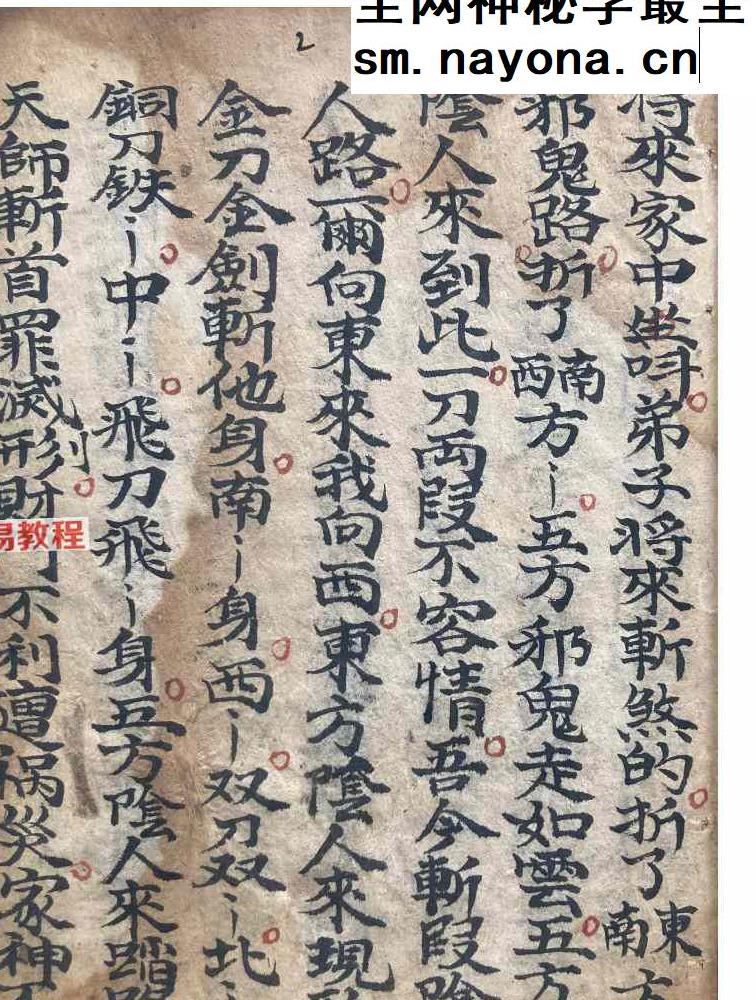 全网神秘学最全
sm.nayona.cn
2
将來家中坐呌弟子將來斬煞的折了東南方
邪鬼路折了南西方〻五方邪鬼走如雲五方
陰人來到此一刀両段不容情吾今斬段陰
人路爾向東來我向西東方陰人來現
金刀金劍斬他身南〻身西〻双刀双〻北〻
銅刀鉄〻中〻飛刀飛〻身五方陰人來踏路
天師斬首罪滅形 不利遭祸災家神
易教程